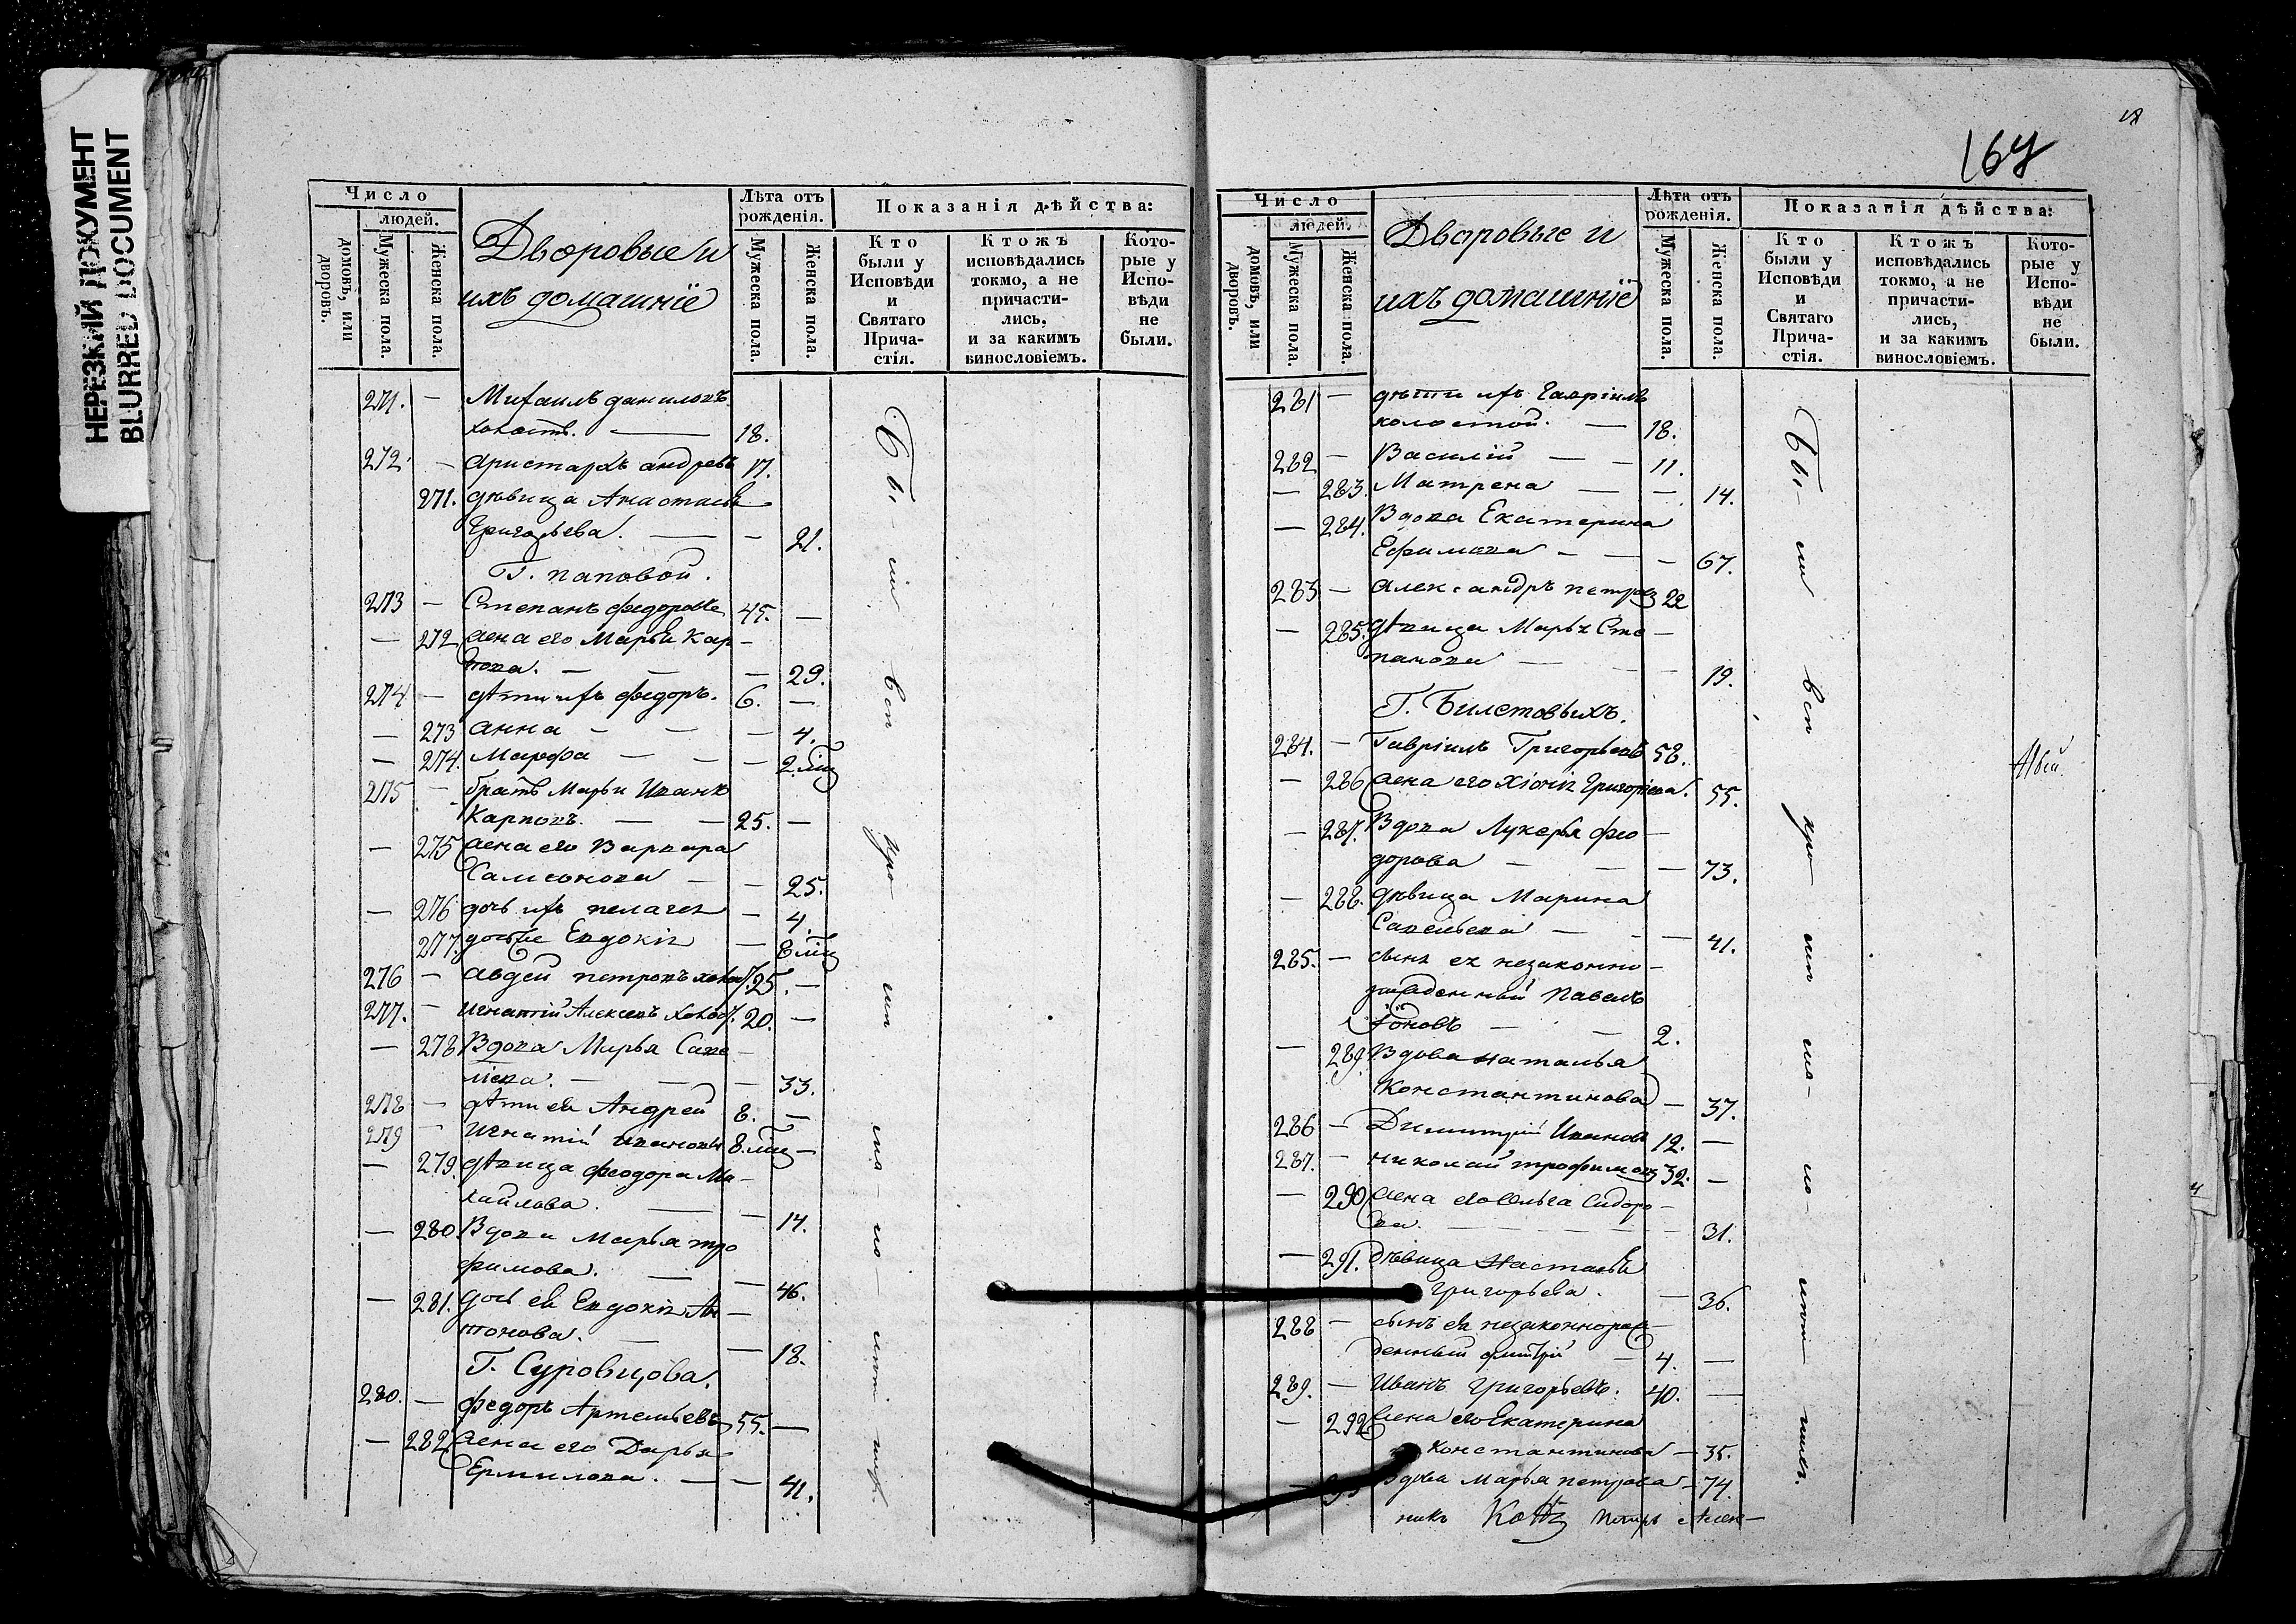 НЕРЕЗКИЙ ДОКУМЕНТ
BLURRED DOCUMENT
Число
людей.
домовъ, или дворовъ.
Мужеска пола.
Женска пола.
Дворовые и
ихъ домашніе
Лѣта отъ рожденія.
Мужеска пола.
Женска пола.
Показанія дѣйства:
Кто были у Исповѣди и Святаго Прича-стія.
Ктожъ исповѣдались токмо, а не причасти-лись, и за какимъ винословіемъ.
Кото-рые у Испо-вѣди не были.
271. — Михаилъ даниловъ
холостъ. — 18.
272. — аристархъ андреевъ 17.
271. дѣвица Анастасья
Григорьева. — — 21.
Г. поповой.
273 — Степанъ федоровъ 45. —
— 272 жена его Марья Кар-
пова. — — — 29.
274 — дѣти ихъ федоръ. 6. —
— 273 анна — — — 4.
— 274. Марфа — — — 2. мѣц
275 — братъ Марьи Иванъ
Карповъ. — — 25. —
— 275 жена его Варвара
Самсонова — — 25.
— 276 дочь ихъ пелагея — 4.
277. Евдокія — 8 мѣц
276 — авдей петровъ холос. 25. —
277. — игнатій Алексеевъ холос. 20. —
— 278 Вдова Марья Саве-
ліева. — — — 33.
278 — дѣти ея Андрей 8. —
279 — Игнатій ивановы 8. мѣц —
— 279. дѣвица феодора Ми-
хайлова. — — 14.
— 280 Вдова Марья тро
фимова. — — 46.
— 281. дочь ея Евдокія Ан-
тонова. — — 18.
Г. Суровцова.
280. — федоръ Артемьевъ 55. —
— 282 жена его Дарья
Ермилова. — — 41.
Бы-ли вси
167
Число
людей.
домовъ, или дворовъ.
Мужеска пола.
Женска пола.
Дворовые и
ихъ домашніе
Лѣта отъ рожденія.
Мужеска пола.
Женска пола.
Показанія дѣйства:
Кто были у Исповѣди и Святаго Прича-стія.
Ктожъ исповѣдались токмо, а не причасти-лись, и за какимъ винословіемъ.
Кото-рые у Испо-вѣди не были.
281 — дѣти ихъ Гавріилъ
холостой. — 18.
282 — Василій — — 11.
— 283. Матрена — — 14.
— 284. Вдова Екатерина
Ефимова — — — 67.
283 — александръ петровъ 22
— 285. дѣвица Марья Сте-
панова — — 19.
Г. Билетовыхъ.
284. — Гавріилъ Григорьевъ 58.
— 286 жена его Хіонія Григорьева. 55.
— 287. Вдова Лукерья фео-
дорова — — — 73.
— 288. дѣвица Марина
Савельева — — — 41.
285. — сынъ ея незаконно-
рожденный Павелъ
— — 2.
— 289. Вдова наталья
Константинова — 37.
286 — Димитрій Ивановъ 12. —
287. — николай трофимовъ 32. —
— 290 жена его Ольга Сидоро-
ва. — — 31.
— 291. дѣвица Настасья
Григорьева. — 36.
288 — сынъ ея незаконнорож-
денный дмитрій — 4. —
289. — Иванъ Григорьевъ. 40. —
— 292 жена его Екатерина
Константинова — 35.
— вдова Марья петрова — 74
никъ
Бы-ли вси